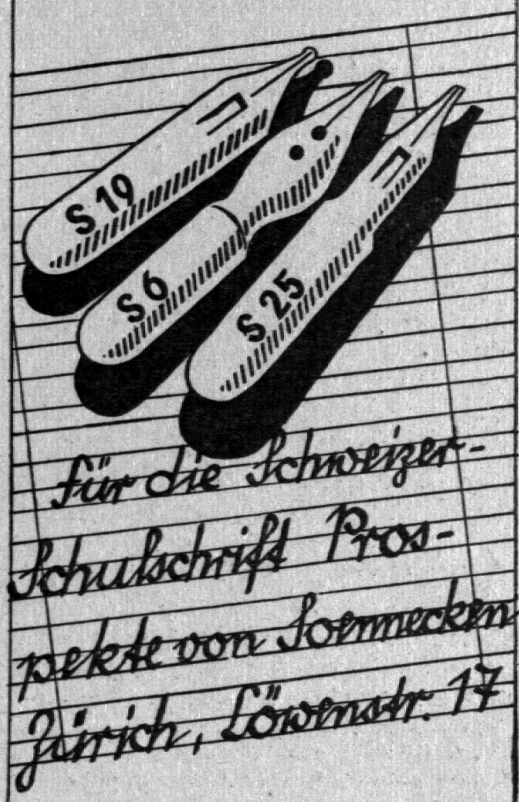 S 19
S 6
S 25
für die Schweizer-
Schulschrift Pros-
pekte von Soennecken
Zürich, Löwenstr. 17